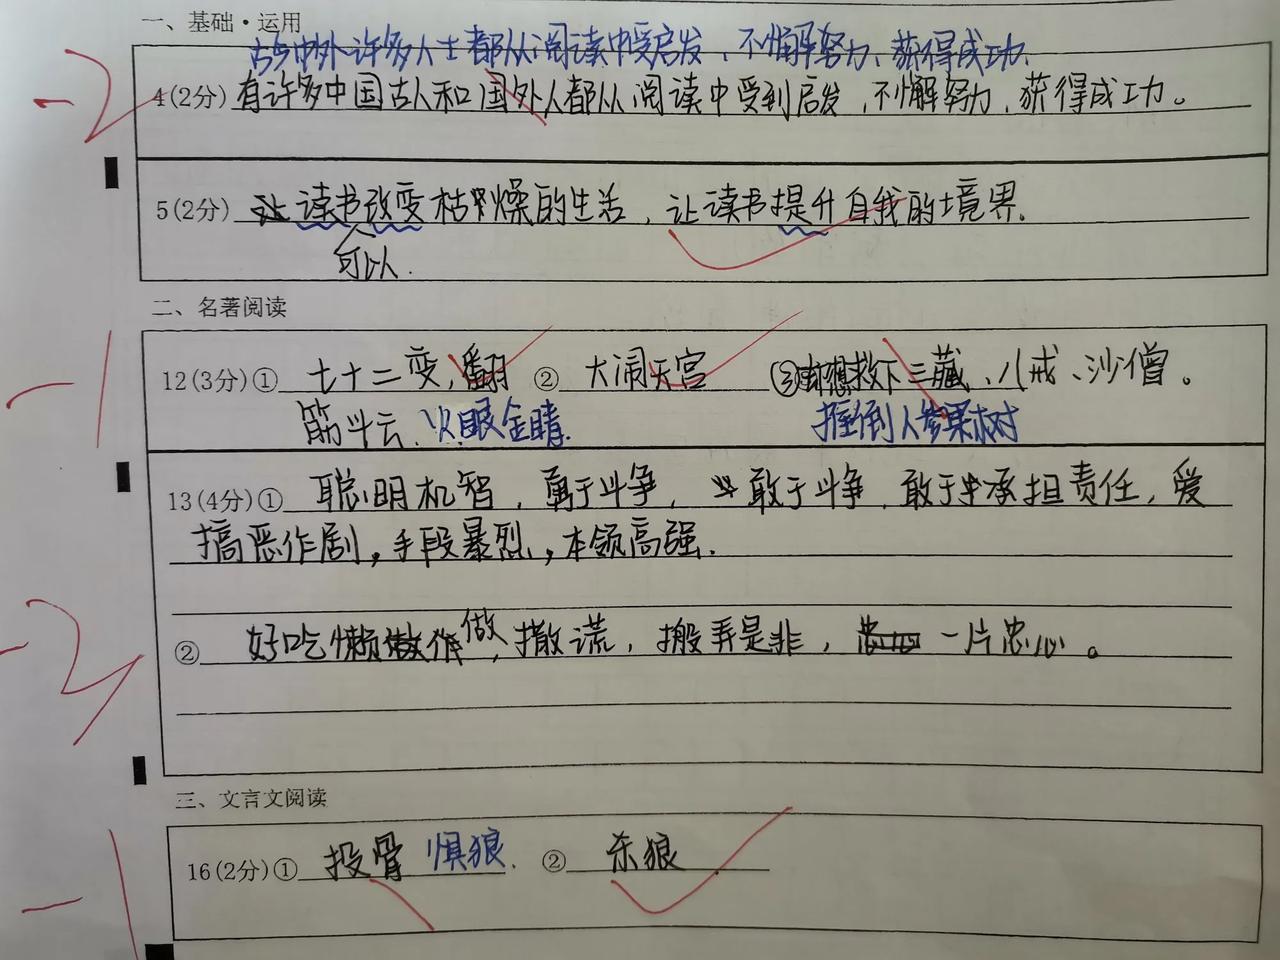 一、基础·运用
古今中外许多人士都从阅读中受启发，不懈努力、获得成功.
-2
4(2分) 有许多中国古人和国外人都从阅读中受到启发，不懈努力，获得成功。
5(2分) 让读书改变枯燥的生活，让读书提升自我的境界.
可以.
二、名著阅读
-1
12(3分)① 七十二变,翻 ② 大闹天宫 ③ 救下三藏、八戒、沙僧。
筋斗云、火眼金睛. 推倒人参果树
13(4分)① 聪明机智，勇于斗争，敢于斗争，敢于承担责任，爱
搞恶作剧，手段暴烈，本领高强.
-2
② 好吃懒做，撒谎，搬弄是非，一片忠心。
三、文言文阅读
-1
16(2分)① 投骨 惧狼. ② 杀狼